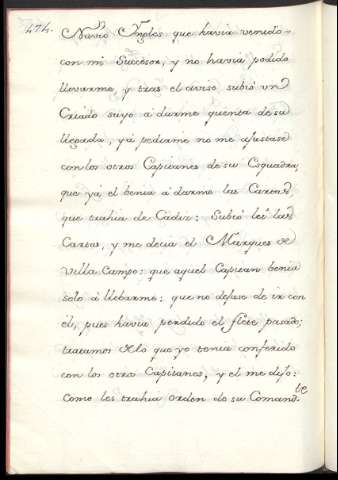 474.
Navio Yngles que havia venido
con mi Succesor, y no havia podido
llevarme, y tras el aviso subió un
Criado suyo á darme quenta de su
llegada, y á pedirme no me ajustase
con los otros Capitanes de su Esquadra,
que yá el benia á darme las Cartas
que trahia de Cadiz: Subió leí las
Cartas, y me decia el Marques de
Villa Campo: que aquel Capitan benia
solo á llebarme; que no dejase de ir con
él, pues havia perdido el flete pasado;
tratamos de lo que yo tenia conferido
con los otros Capitanes, y el me dijo:
Como les trahia orden de su Comand.te